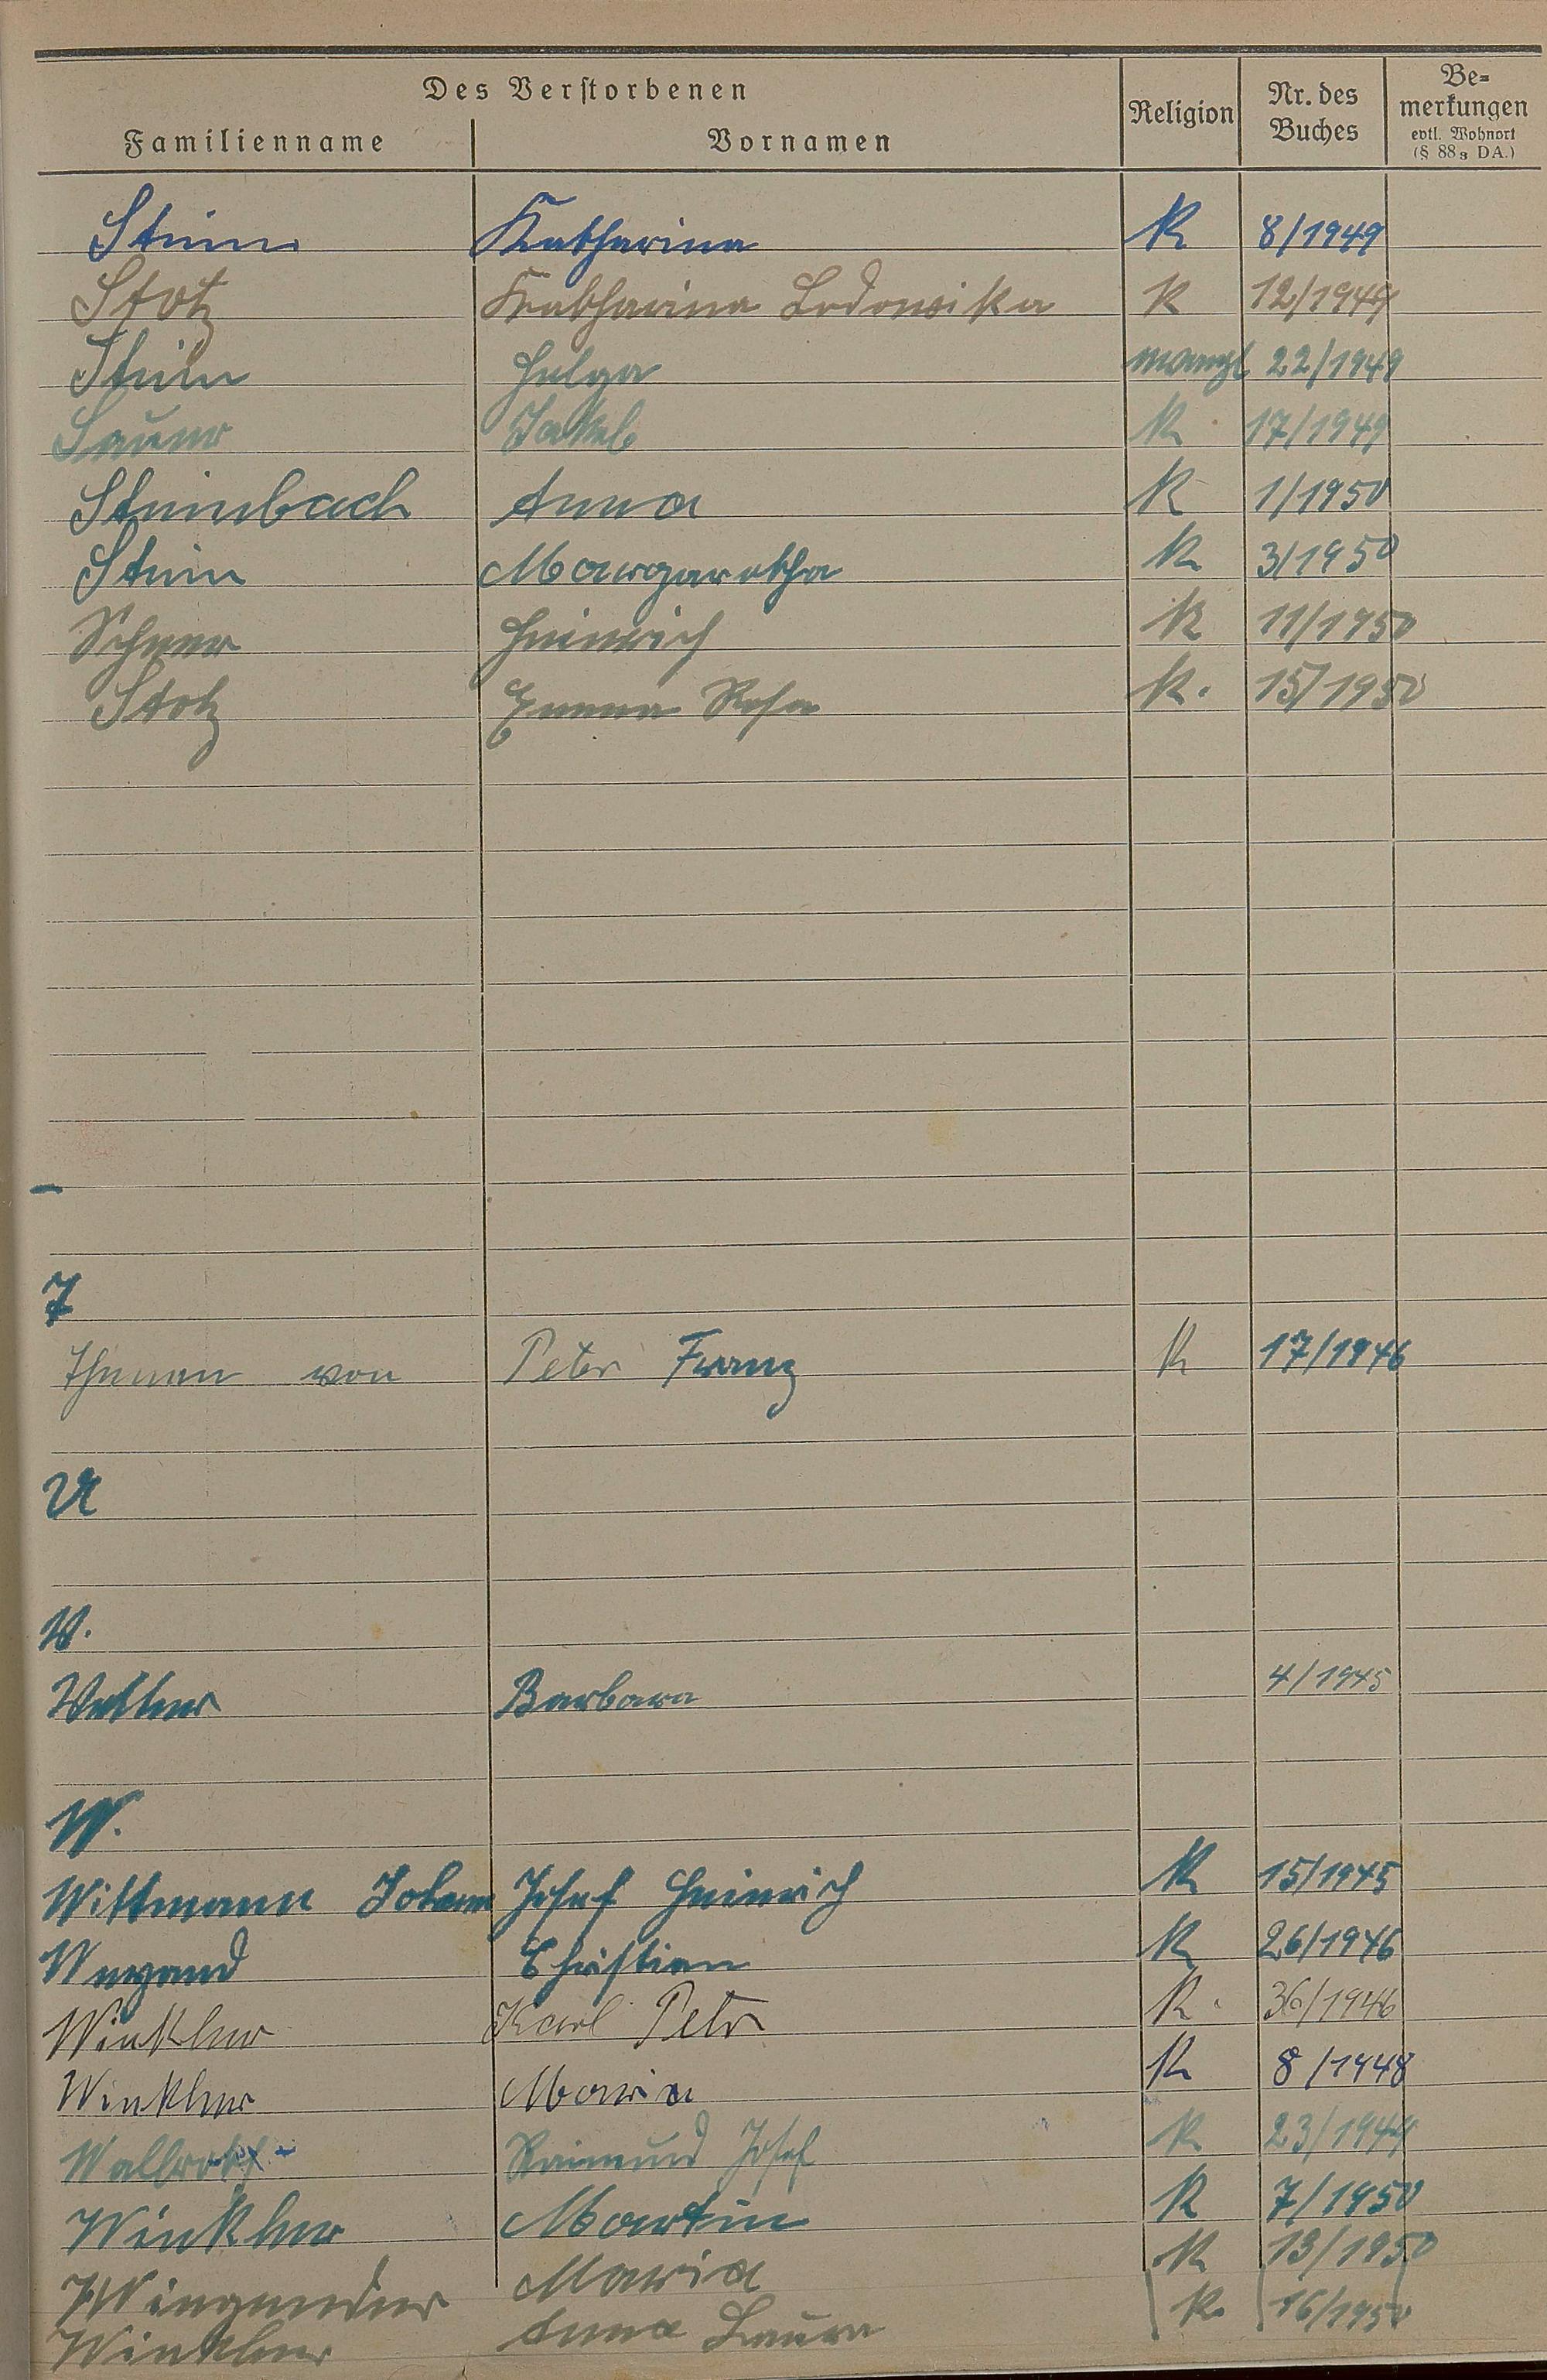 Des Verstorbenen
Familienname Vornamen Religion Nr. des Buches Bemerkungen evtl. Wohnort (§ 88₃ DA.)
Stein Katharina K 8/1949
Stotz Katharina Ludowika K 12/1949
Stein Helga evangl 22/1949
Sauer Jakob K 17/1949
Steinbach Anna K 1/1950
Stein Margaretha K 3/1950
Scherer Heinrich K 11/1950
Stotz Emma Rosa K. 15/1950
T
Thenen von Peter Franz K 17/1946
U
V.
Vetter Barbara 4/1945
W.
Wittmann Johann Josef Heinrich K 15/1945
Weyand Christian K 26/1946
Winkler Karl Peter K. 36/1946
Winkler Maria K 8/1948
Wallroth Raimund Josef K 23/1949
Winkler Martin K 7/1950
Wingender Maria K 13/1950
Winkler Anna Laura K. 16/1950